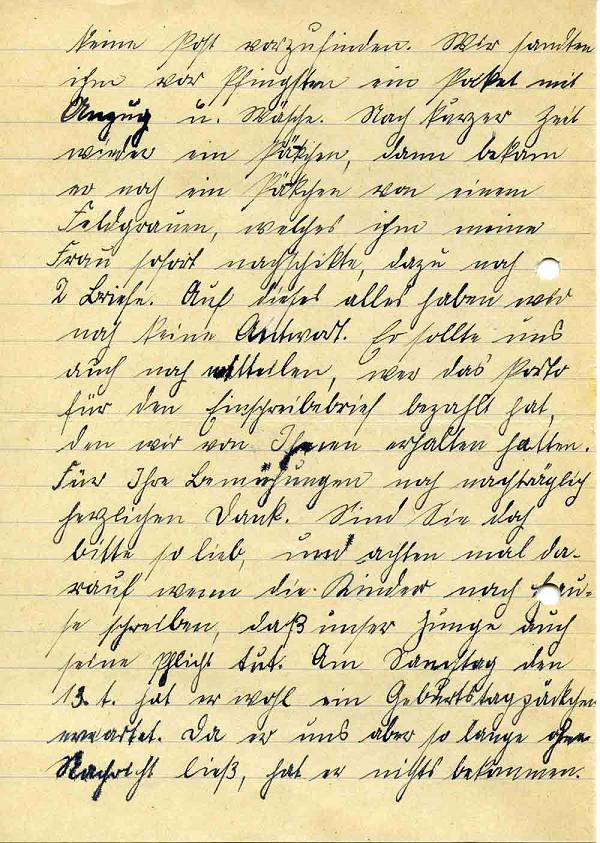 keine Post vorzufinden. Wir sandten
ihm vor Pfingsten ein Paket mit
Anzug u. Wäsche. Nach kurzer Zeit
wieder ein Päkchen, dann bekam
er noch ein Päkchen von einem
Feldgrauen, welches ihm meine
Frau sofort nachschikte, dazu noch
2 Briefe. Auf dieses alles haben wir
noch keine Antwort. Er sollte uns
auch noch mitteilen, wer das Porto
für den Einschreibebrief bezahlt hat,
den wir von Ihnen erhalten hatten.
Für Ihre Bemühungen noch nachträglich
herzlichen Dank. Sind Sie doch
bitte so lieb, und achten mal da-
rauf wenn die Kinder nach Hau-
se schreiben, daß unser Junge auch
seine Pflicht tut. Am Samstag den
13. t. hat er wohl ein Geburtstagspäckchen
erwartet. Da er uns aber so lange ohne
Nachricht ließ, hat er nichts bekommen.